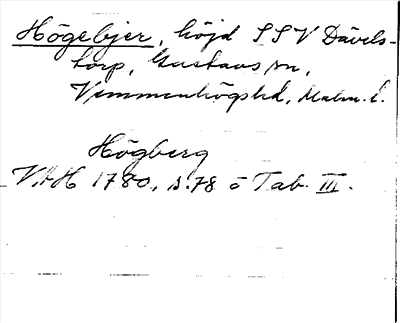 Högebjer, höjd SSV Dävels-
torp, Gustavs sn,
Vemmenhögshd, Malm. l.
Högberg
VAH 1780, s. 78 o Tab. III.